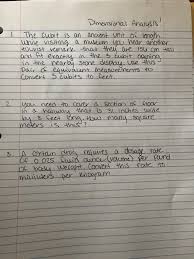 Dimensional Analysis
1. The Cubit is an ancient unit of length
While visiting a museum you hear another
visitor remark that they are 150 cm tall
and fit exactly in the 3 cubit opening
in the nearby store display. Use this
Pair of Equivalent measurements to
Convert 5 cubits to feet.
2. You need to cover a section of floor
in a hallway that is 32 inches wide
by 8 feet long. How many square
meters is this?
3. A certain drug requires a dosage rate
of 0.025 fluid ounce (volume) per Pound
of body weight. Convert this rate to
milliliters per Kilogram